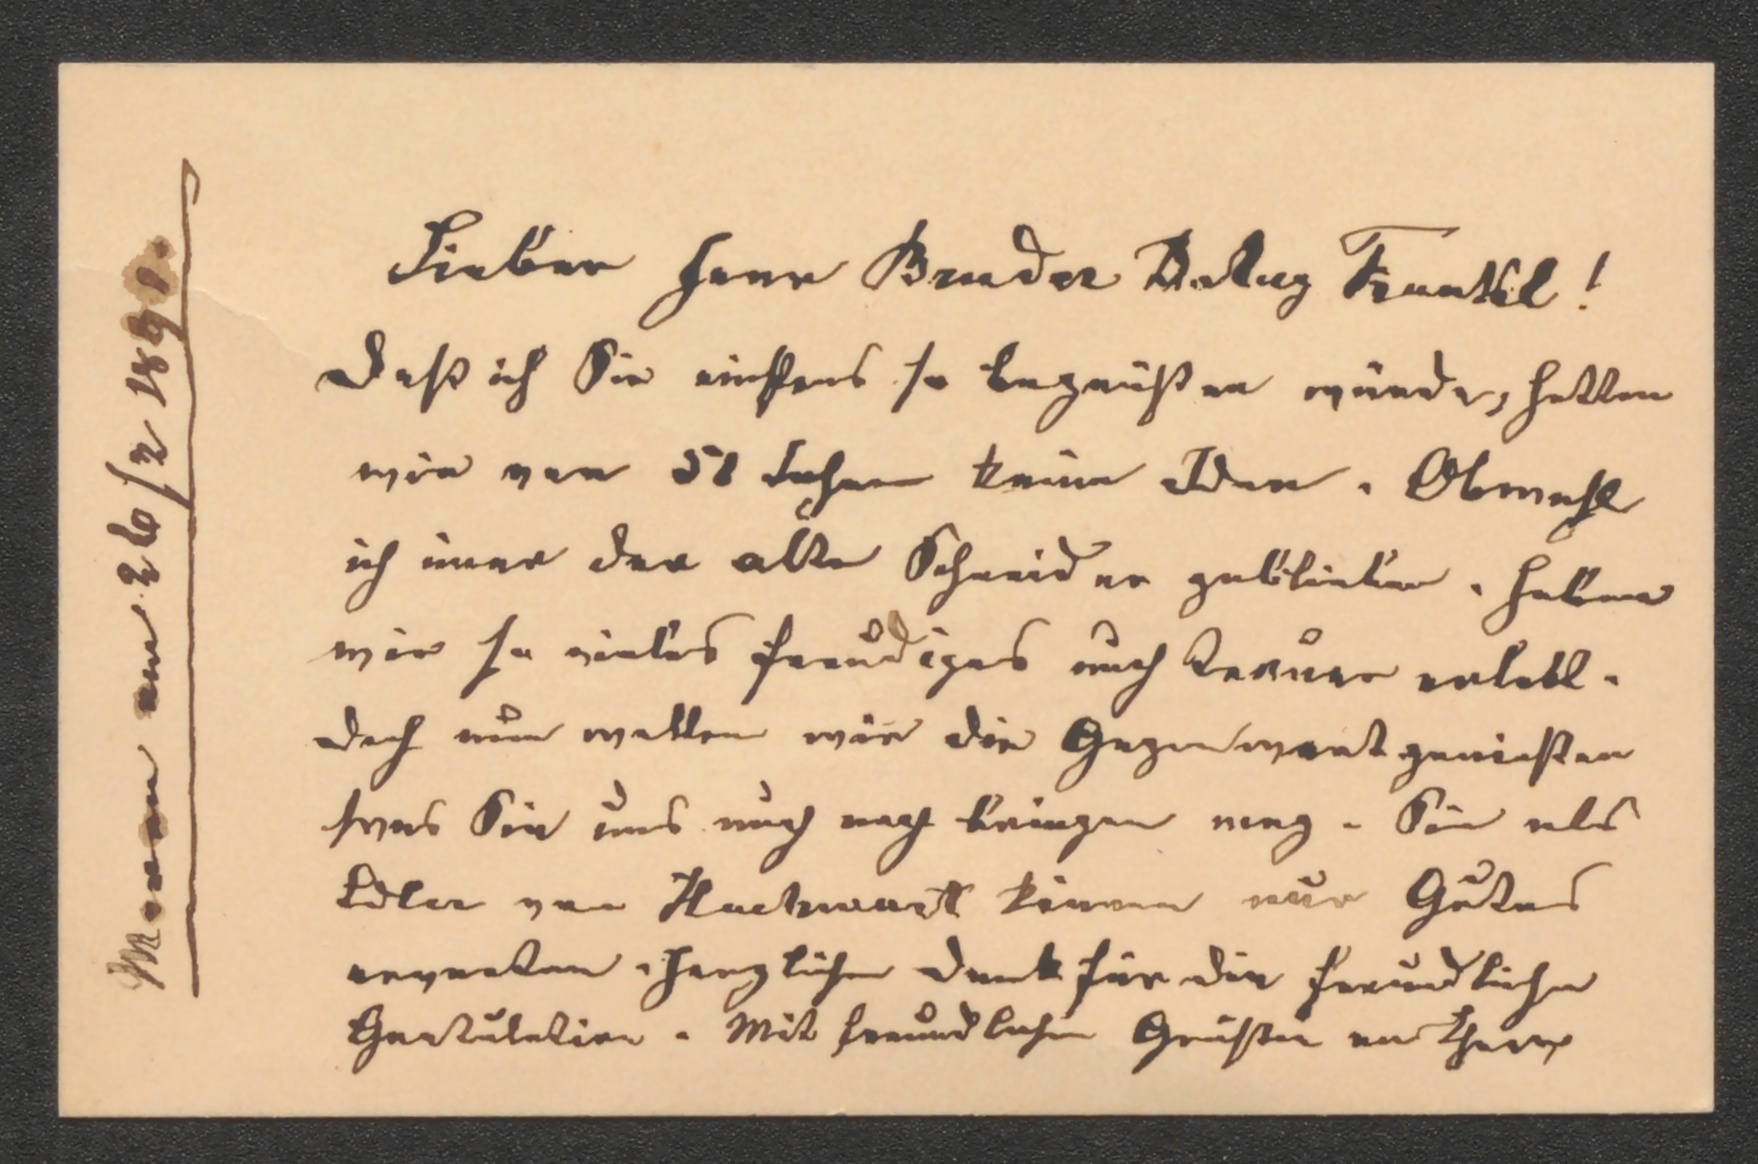 Meran am 26/2 1891.
Lieber Herr Bruder Frankl!
Daß ich Sie einstens so begrüßen würde, hatten
wir vor 51 Jahren keine Idee. Obwohl
ich imer der alte Schneider geblieben. Haben
wir so vieles freudiges auch erlebt.
doch nun wollen wir die Gegenwart genießen
was Sie uns auch noch bringen mag. Sie als
Edler von Hochwart können nur Gutes
erwarten. Herzlichen Dank für die freundliche
Gratulation. Mit freundlichen Grüßen an